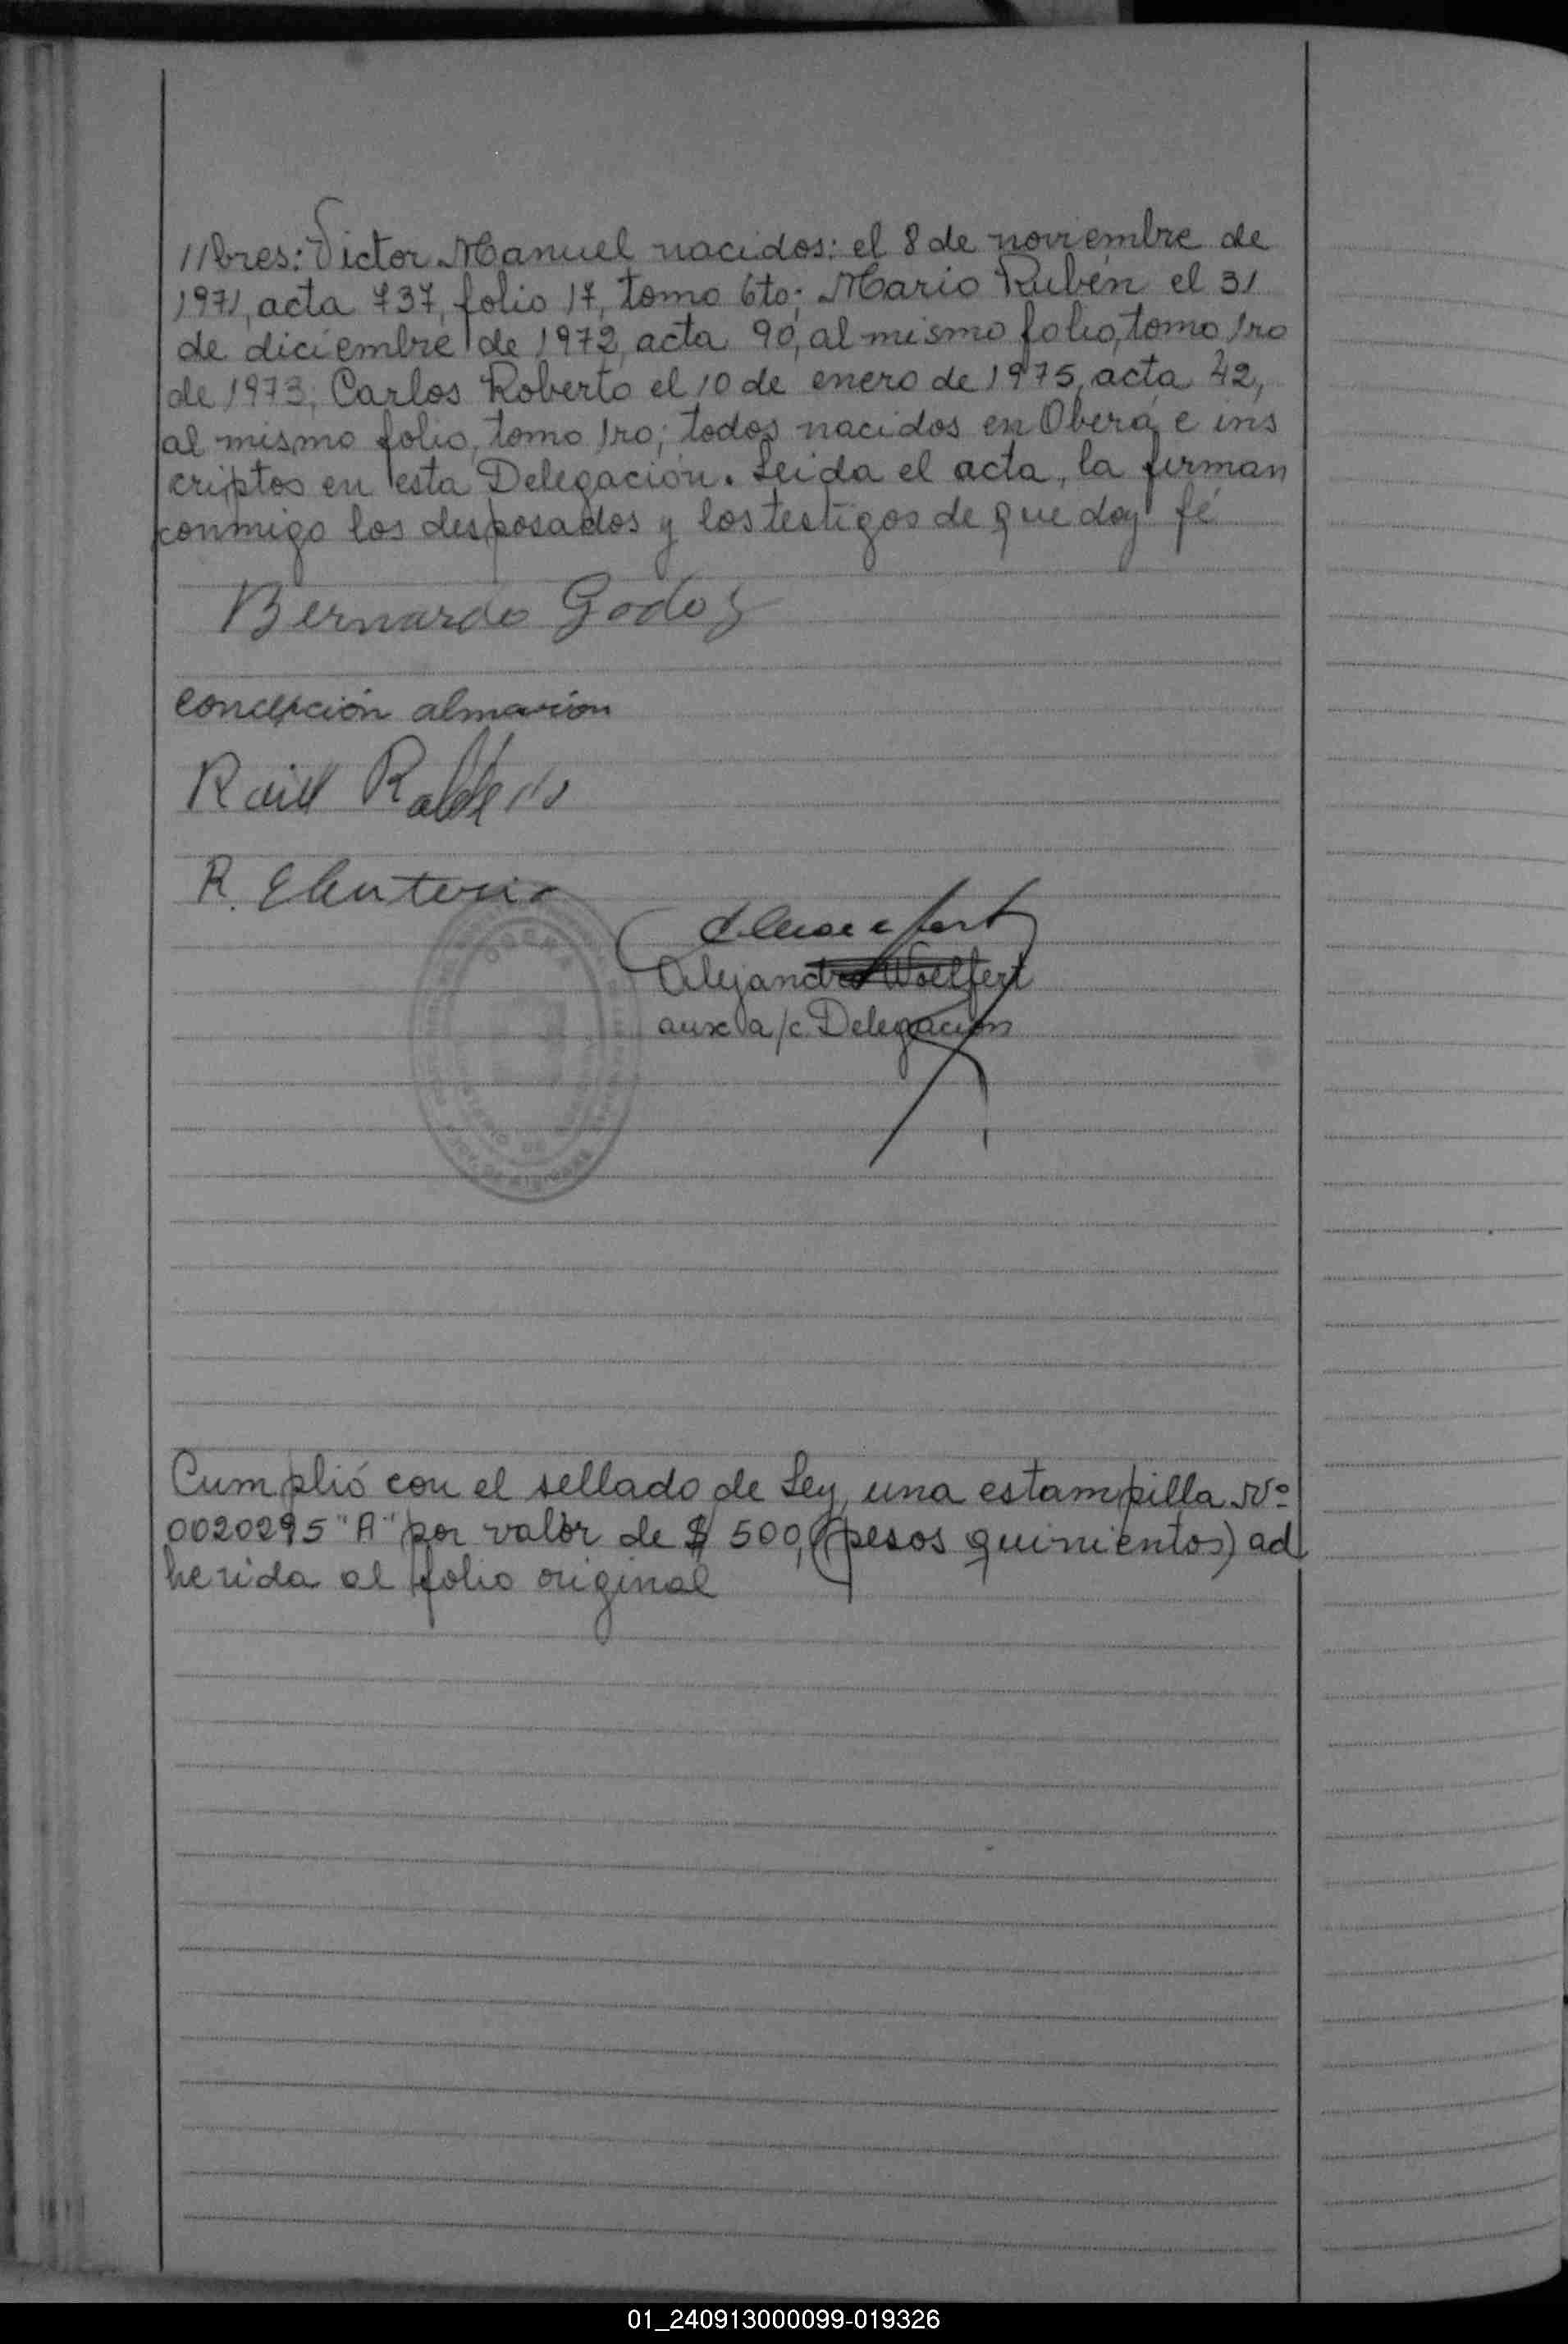 //bres: Victor Manuel nacidos: el 8 de noviembre de
1971, acta 737, folio 17, tomo 6to; Mario Rubén el 31
de diciembre de 1972, acta 90, al mismo folio, tomo 1ro
de 1973; Carlos Roberto el 10 de enero de 1975, acta 42,
al mismo folio, tomo 1ro; todos nacidos en Oberá e ins
criptos en esta Delegación. Leida el acta, la firman
conmigo los desposados y los testigos de que doy fé
Bernardo Godoy
concepción almarión
Raúl
R. Eleuterio
Alejandro Woelfert
aux a/c Delegación
OBERA
Cumplió con el sellado de Ley, una estampilla Nº
0020295 "A" por valor de $ 500, (pesos quinientos) ad
herida al folio original
01_240913000099-019326